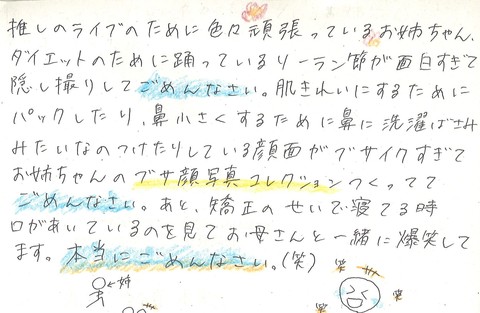 推しのライブのために色々頑張っているお姉ちゃん、
ダイエットのために踊っているリーラン節が面白すぎて
隠し撮りしてごめんなさい。肌きれいにするために
パックしたり、鼻小さくするために鼻に洗濯ばさみ
みたいなのつけたりしている顔面がブサイクすぎて
お姉ちゃんのブサ顔写真コレクションつくってて
ごめんなさい。あと、矯正のせいで寝てる時
口があいているのを見てお母さんと一緒に爆笑して
ます。本当にごめんなさい。(笑)
←姉
笑
笑
笑